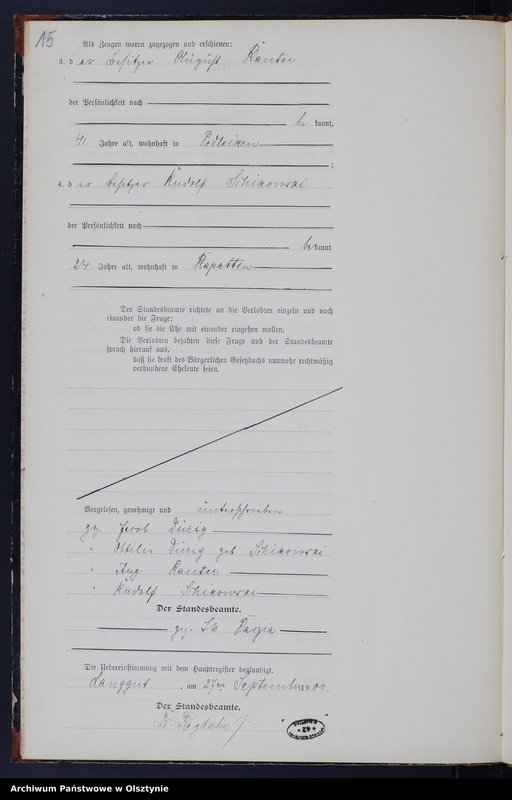 15
Als Zeugen waren zugezogen und erschienen:
3. der Besitzer August Kanter
der Persönlichkeit nach
bekannt,
41 Jahre alt, wohnhaft in Podleiken
;
4. der Besitzer Rudolf Schikowski
der Persönlichkeit nach
bekannt
24 Jahre alt, wohnhaft in Rapatten
Der Standesbeamte richtete an die Verlobten einzeln und nach
einander die Frage:
ob sie die Ehe mit einander eingehen wollen.
Die Verlobten bejahten diese Frage und der Standesbeamte
sprach hierauf aus,
daß sie kraft des Bürgerlichen Gesetzbuchs nunmehr rechtmäßig
verbundene Eheleute seien.
Vorgelesen, genehmigt und unterschrieben
gez. Jacob Dürig
" Ottilie Dürig geb Schikowski
" Aug. Kanter
" Rudolf Schikowski
Der Standesbeamte.
gez.
Die Uebereinstimmung mit dem Hauptregister beglaubigt.
Langgut, am 27ten September 1900.
Der Standesbeamte.
Archiwum Państwowe w Olsztynie